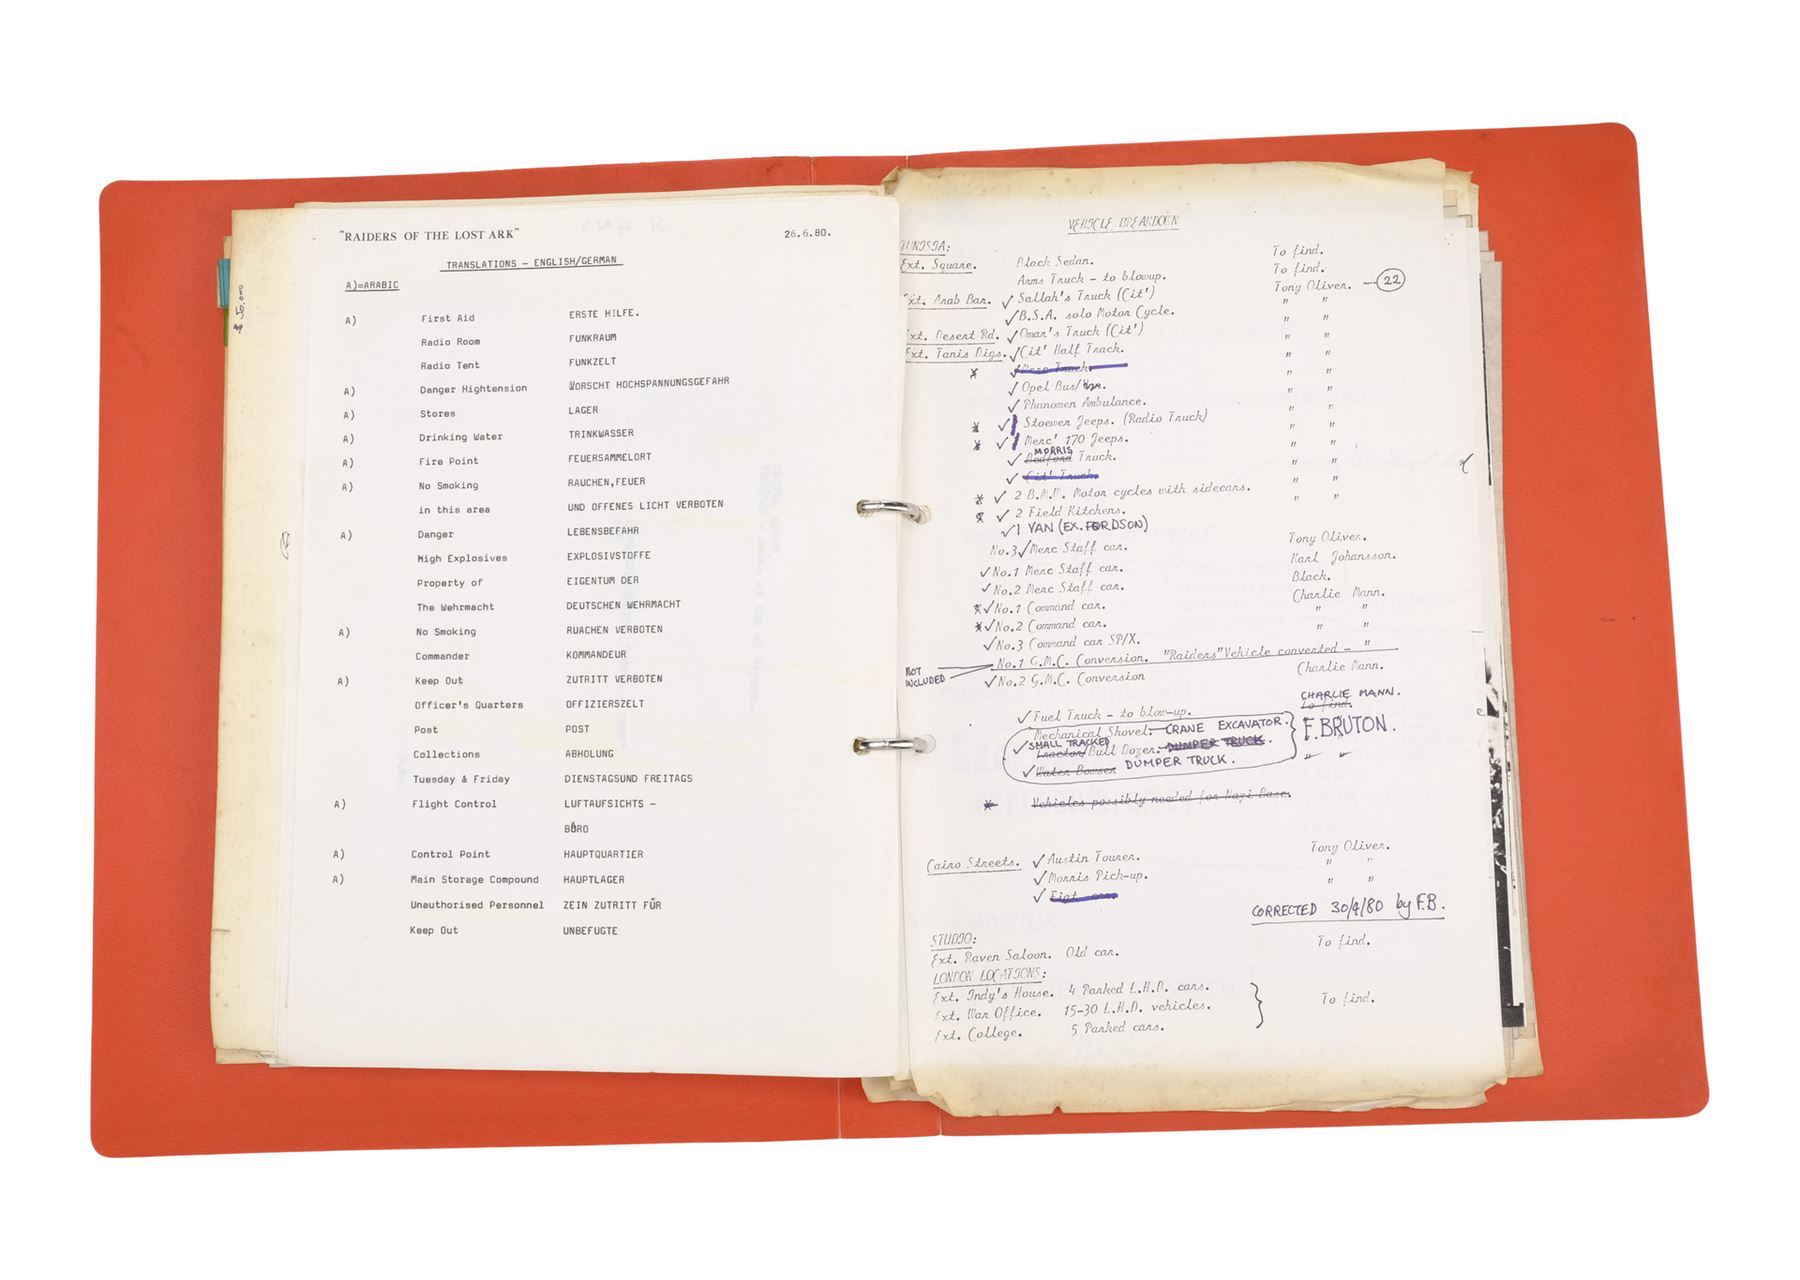 "RAIDERS OF THE LOST ARK" 26.6.80.
TRANSLATIONS - ENGLISH/GERMAN
A)=ARABIC
A) First Aid ERSTE HILFE.
Radio Room FUNKRAUM
Radio Tent FUNKZELT
A) Danger Hightension VORSCHT HOCHSPANNUNGSGEFAHR
A) Stores LAGER
A) Drinking Water TRINKWASSER
A) Fire Point FEUERSAMMELORT
A) No Smoking RAUCHEN,FEUER
in this area UND OFFENES LICHT VERBOTEN
A) Danger LEBENSBEFAHR
High Explosives EXPLOSIVSTOFFE
Property of EIGENTUM DER
The Wehrmacht DEUTSCHEN WEHRMACHT
A) No Smoking RUACHEN VERBOTEN
Commander KOMMANDEUR
A) Keep Out ZUTRITT VERBOTEN
Officer's Quarters OFFIZIERSZELT
Post POST
Collections ABHOLUNG
Tuesday & Friday DIENSTAGSUND FREITAGS
A) Flight Control LUFTAUFSICHTS -
BÜRO
A) Control Point HAUPTQUARTIER
A) Main Storage Compound HAUPTLAGER
Unauthorised Personnel ZEIN ZUTRITT FÜR
Keep Out UNBEFUGTE
VEHICLE BREAKDOWN
TUNISIA:
Ext. Square. Black Sedan. To find.
Arms Truck - to blowup. To find.
Ext. Arab Bar. ✓ Sallah's Truck (Cit') Tony Oliver. - 22
✓ B.S.A. solo Motor Cycle. " "
Ext. Desert Rd. ✓ Omar's Truck (Cit') " "
Ext. Tanis Digs. ✓ Cit' Half Track. " "
* ✓ Merc Truck. " "
✓ Opel Bus/ " "
✓ Phanomen Ambulance. " "
* ✓ 1 Stoewer Jeeps. (Radio Truck) " "
* ✓ 1 Merc' 170 Jeeps. " "
✓ Bedford MORRIS Truck. " "
✓ Cit' Truck. " "
* ✓ 2 B.M.W. Motor cycles with sidecars. " "
* ✓ 2 Field Kitchens. " "
✓ 1 VAN (EX. FORDSON)
No.3 ✓ Merc Staff car. Tony Oliver.
✓ No.1 Merc Staff car. Karl Johansson.
✓ No.2 Merc Staff car. Black.
* ✓ No.1 Command car. Charlie Mann.
* ✓ No.2 Command car. " "
✓ No.3 Command car SP/X. " "
NOT INCLUDED No.1 G.M.C. Conversion. "Raiders" Vehicle converted - " "
✓ No.2 G.M.C. Conversion Charlie Mann.
✓ Fuel Truck - to blow-up. To find. CHARLIE MANN.
Mechanical Shovel. CRANE EXCAVATOR. F. BRUTON.
✓ Tractor/ SMALL TRACKED Bull Dozer. DUMPER TRUCK. " "
✓ Water Bowser DUMPER TRUCK.
* Vehicles possibly needed for Nazi Base.
Cairo Streets. ✓ Austin Tourer. Tony Oliver.
✓ Morris Pick-up. " "
✓ Fiat car " "
CORRECTED 30/4/80 by F.B.
STUDIO:
Ext. Raven Saloon. Old car. To find.
LONDON LOCATIONS:
Ext. Indy's House. 4 Parked L.H.D. cars.
Ext. War Office. 15-30 L.H.D. vehicles. To find.
Ext. College. 5 Parked cars.